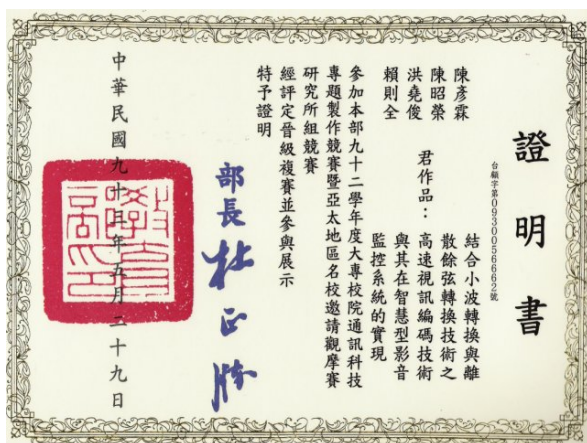 證明書
台顧字第0930056662號
陳彥霖
陳昭榮
洪堯俊
賴則全
君作品：
結合小波轉換與離
散餘弦轉換技術之
高速視訊編碼技術
與其在智慧型影音
監控系統的實現
參加本部九十二學年度大專校院通訊科技
專題製作競賽暨亞太地區名校邀請觀摩賽
研究所組競賽
經評定晉級複賽並參與展示
特予證明
部長 杜正勝
中華民國九十三年五月二十九日
教育部印